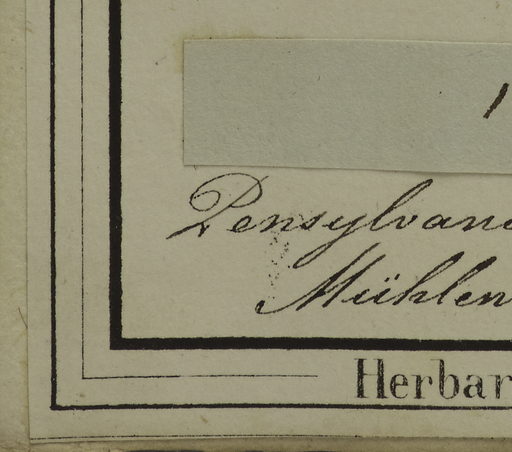 1
Pensylvani
Mühlen
Herbar